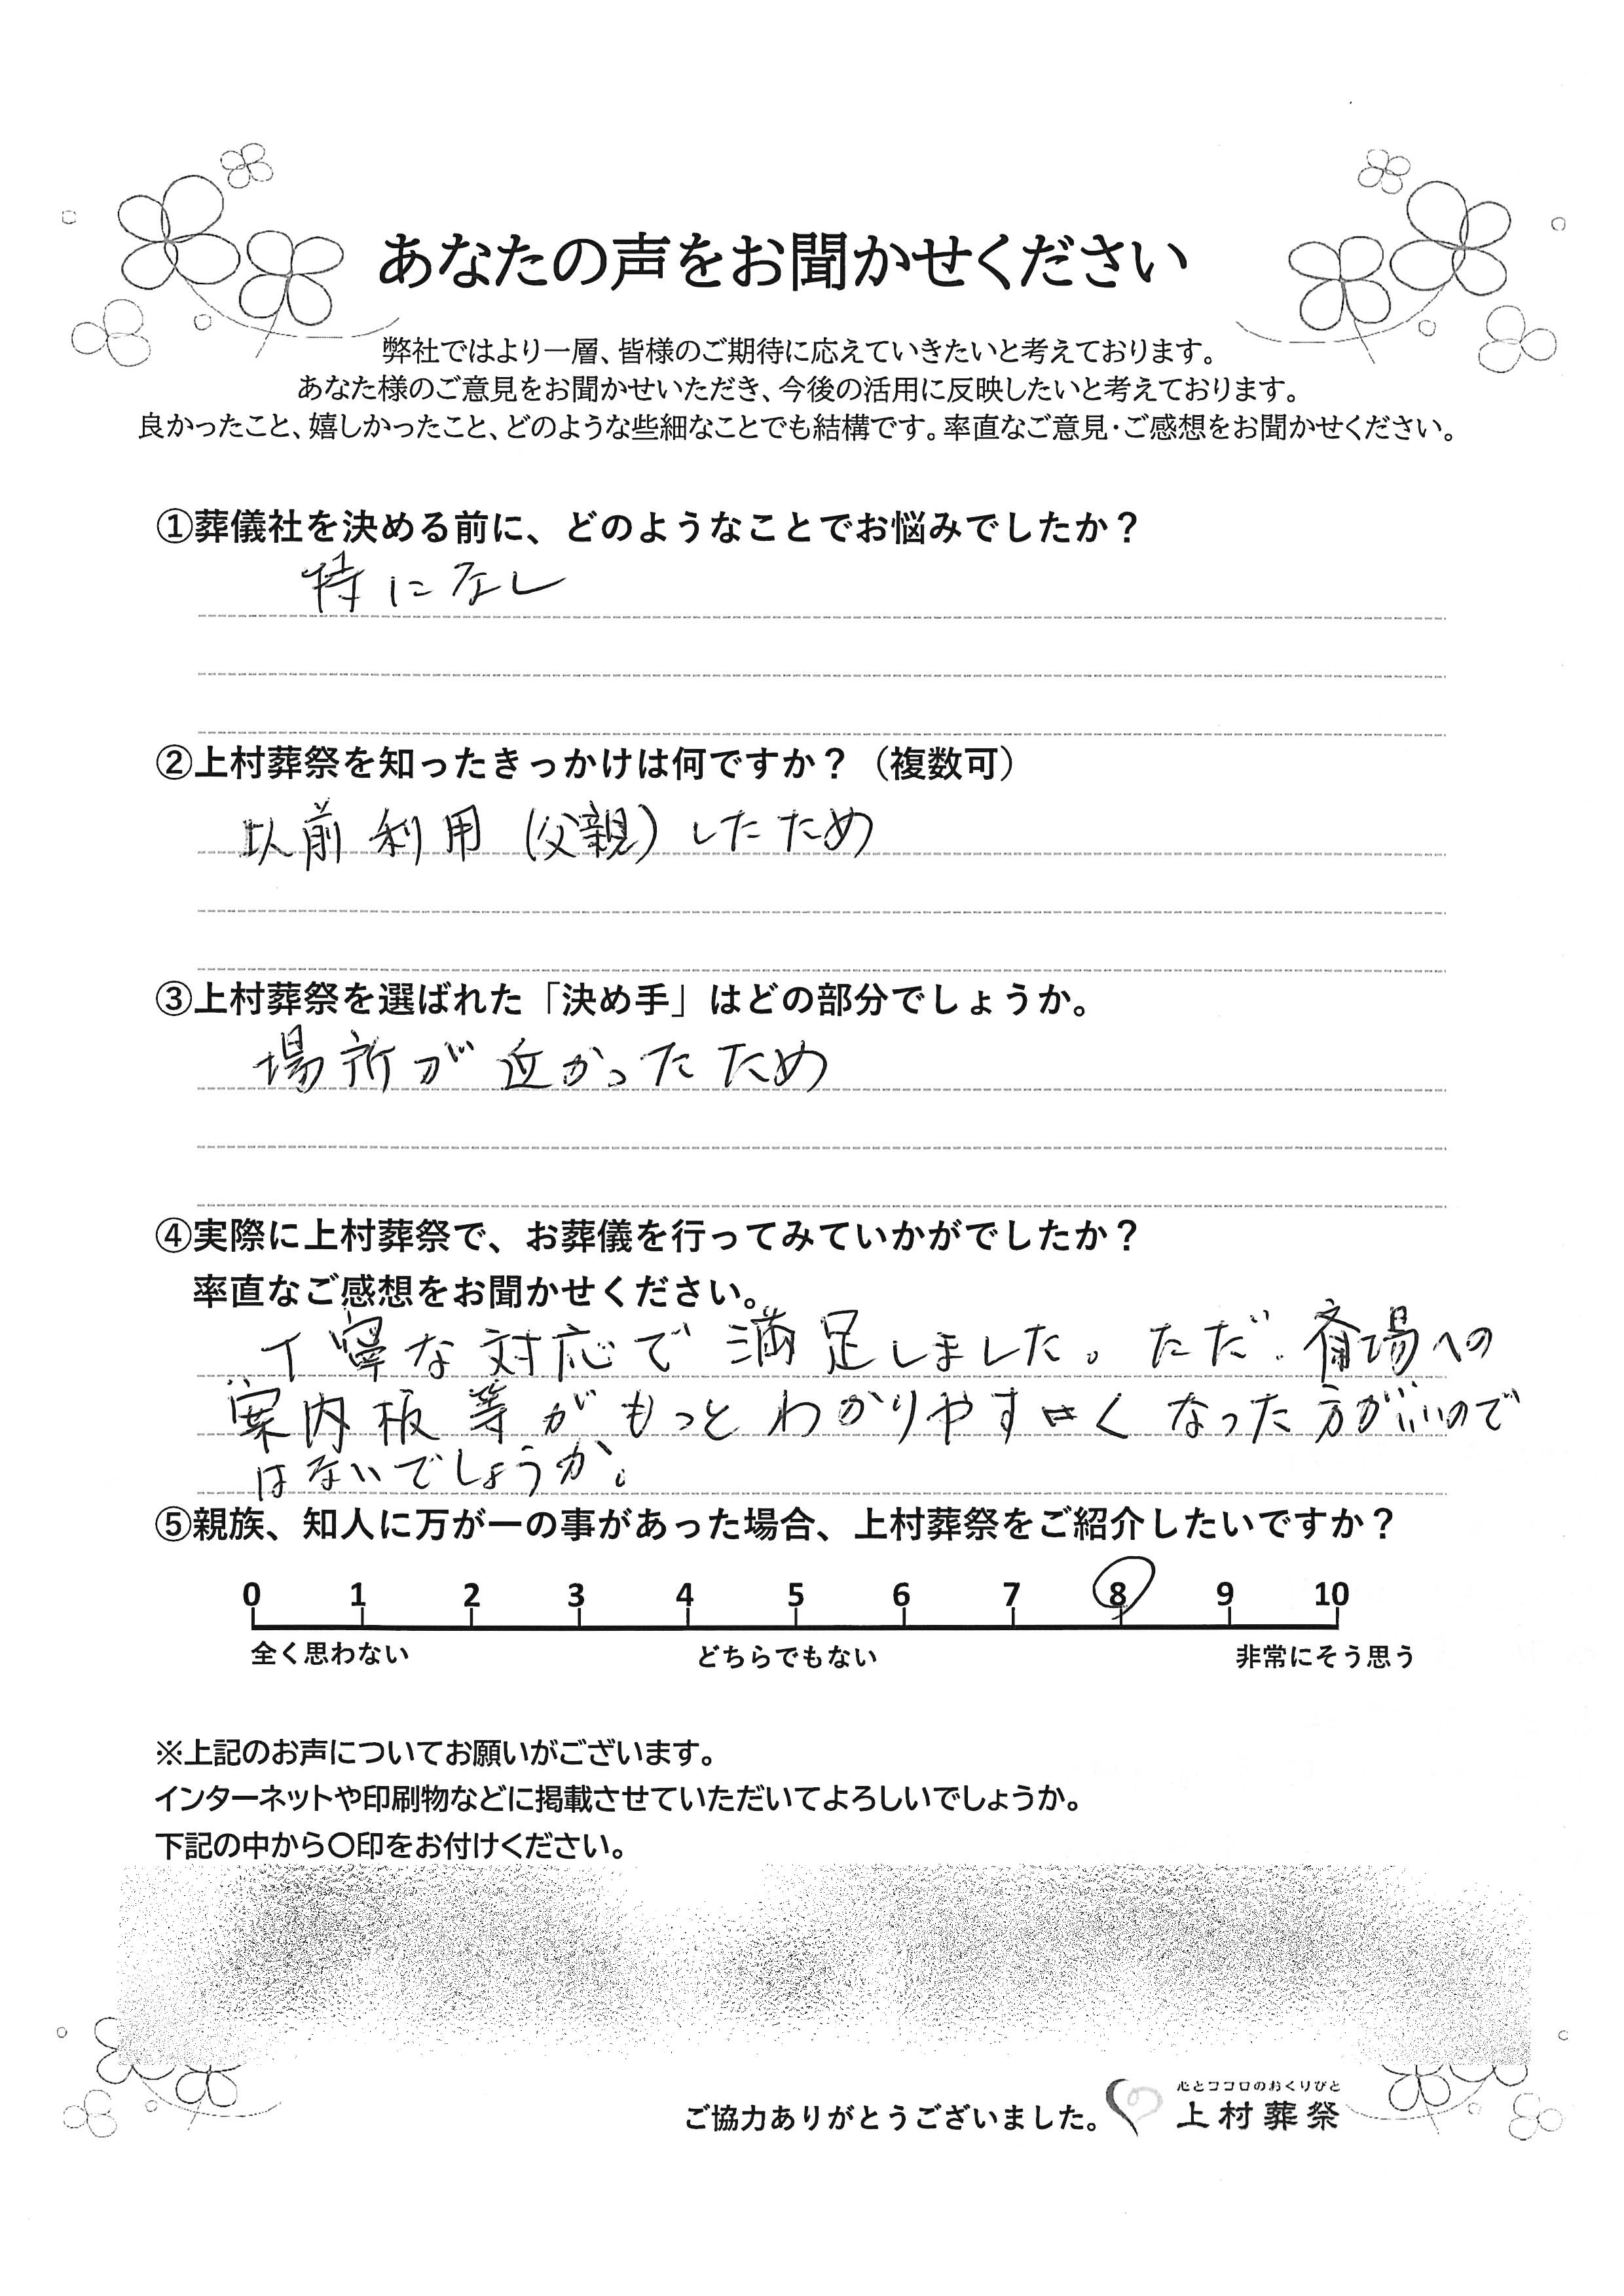 あなたの声をお聞かせください
弊社ではより一層、皆様のご期待に応えていきたいと考えております。
あなた様のご意見をお聞かせいただき、今後の活用に反映したいと考えております。
良かったこと、嬉しかったこと、どのような些細なことでも結構です。率直なご意見・ご感想をお聞かせください。
①葬儀社を決める前に、どのようなことでお悩みでしたか？
特になし
②上村葬祭を知ったきっかけは何ですか？（複数可）
以前利用（父親）したため
③上村葬祭を選ばれた「決め手」はどの部分でしょうか。
場所が近かったため
④実際に上村葬祭で、お葬儀を行ってみていかがでしたか？
率直なご感想をお聞かせください。
丁寧な対応で満足しました。ただ、斎場への
案内板等がもっとわかりやすく なった方がいいので
はないでしょうか。
⑤親族、知人に万が一の事があった場合、上村葬祭をご紹介したいですか？
0 1 2 3 4 5 6 7 8 9 10
全く思わない どちらでもない 非常にそう思う
※上記のお声についてお願いがございます。
インターネットや印刷物などに掲載させていただいてよろしいでしょうか。
下記の中から〇印をお付けください。
心とココロのおくりびと
ご協力ありがとうございました。 上村葬祭